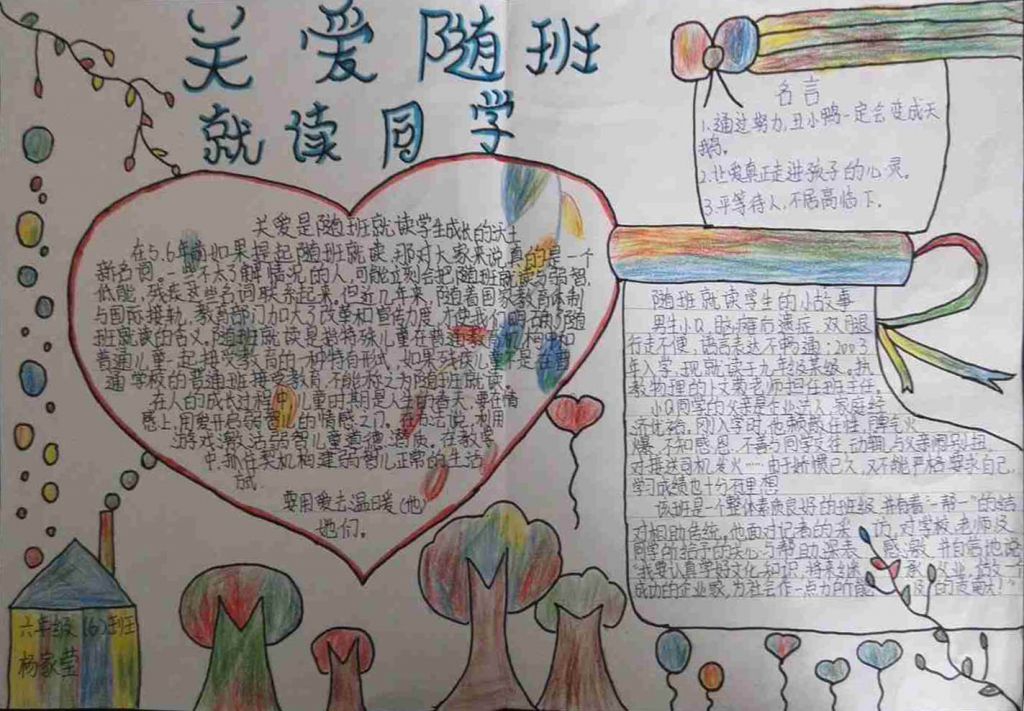 关爱随班
就读同学
名言
1.通过努力,丑小鸭一定会变成天
鹅。
2.让爱真正走进孩子的心灵。
3.平等待人,不居高临下。
关爱是随班就读学生成长的沃土
在5、6年前如果提起随班就读,那对大家来说,真的是一个
新名词,一些不太了解情况的人,可能立刻会把随班就读与弱智,
低能,残疾这些名词联系起来,但近几年来,随着国家教育体制
与国际接轨,教育部门加大了改革和宣传力度,才使我们明白了随
班就读的含义。随班就读是指特殊儿童在普通教育机构中和
普通儿童一起接受教育的一种特殊形式,如果残疾儿童不是在普
通学校的普通班接受教育,不能称之为随班就读。
在人的成长过程中,儿童时期是人生的春天,要在情
感上,用爱开启弱智儿的情感之门。在方法上,利用
游戏激活弱智儿童道德潜质。在教学
中,抓住契机构建弱智儿正常的生活
方式.
要用爱去温暖(他)
她们。
随班就读学生的小故事
男生小Q,脑瘫后遗症,双腿
行走不便,语言表达不畅通;2003
年入学,现就读于九年级某级。执
教物理的卜文荣老师担任班主任。
小Q同学的父亲是企业法人,家庭经
济优裕,刚入学时,他颇感任性,脾气火
爆,不知感恩,不善与同学交往,动辄与父亲闹别扭
对接送司机发火……由于娇惯已久,又不能严格要求自己,
学习成绩也十分不理想
该班是一个整体素质良好的班级,并有着“一帮一”的结
对相助传统。他面对记者的采访,对学校、老师及
同学所给予的关心与帮助深表感激,并自信地说
“我要认真学好文化知识,将来继业,做一个
成功的企业家,为社会作一点力所能及的贡献!
六年级(6)班
杨家莹